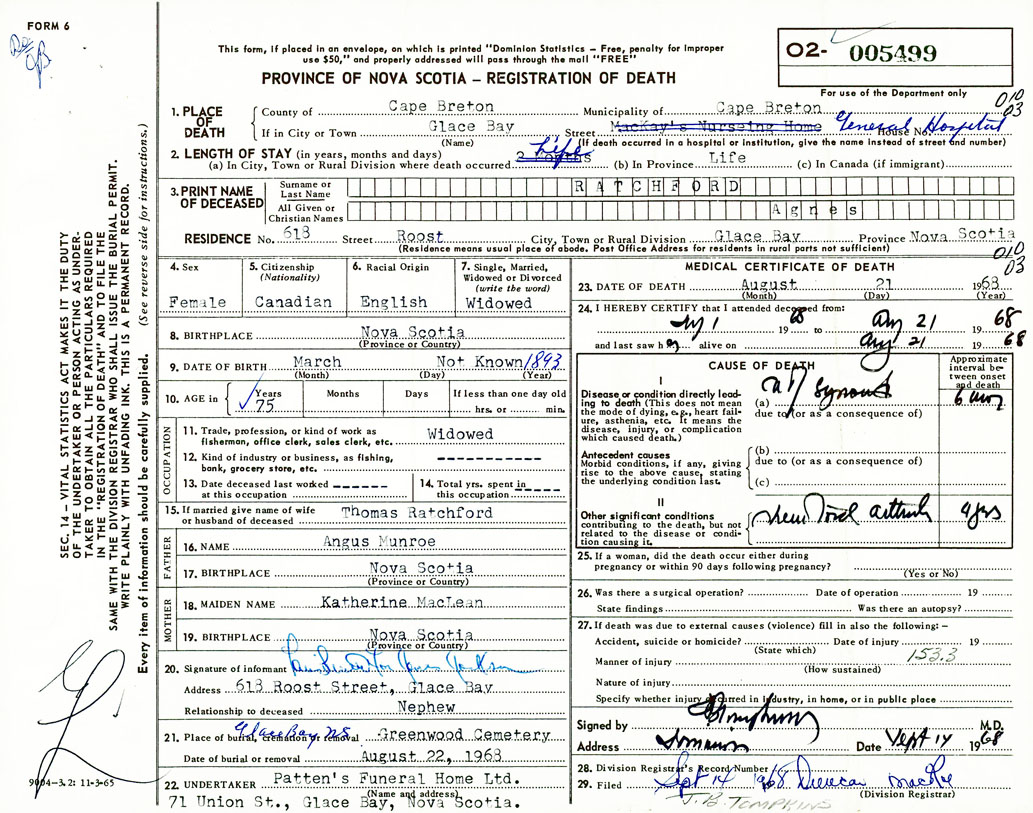 FORM 6
This form, if placed in an envelope, on which is printed "Dominion Statistics – Free, penalty for improper
use $50," and properly addressed will pass through the mail "FREE"
PROVINCE OF NOVA SCOTIA – REGISTRATION OF DEATH
O2- 005499
For use of the Department only
010
03
SEC. 14 – VITAL STATISTICS ACT MAKES IT THE DUTY
OF THE UNDERTAKER OR PERSON ACTING AS UNDER-
TAKER TO OBTAIN ALL THE PARTICULARS REQUIRED
IN THE "REGISTRATION OF DEATH" AND TO FILE THE
SAME WITH THE DIVISION REGISTRAR WHO SHALL ISSUE THE BURIAL PERMIT.
WRITE PLAINLY WITH UNFADING INK. THIS IS A PERMANENT RECORD.
Every item of information should be carefully supplied. (See reverse side for instructions.)
1. PLACE OF DEATH
County of Cape Breton Municipality of Cape Breton
If in City or Town Glace Bay Street MacKay's Nurseing Home General Hospital House No.
(Name) (If death occurred in a hospital or institution, give the name instead of street and number)
2. LENGTH OF STAY (in years, months and days)
(a) In City, Town or Rural Division where death occurred 2 months Life (b) In Province Life (c) In Canada (if immigrant)
3. PRINT NAME OF DECEASED
Surname or Last Name RATCHFORD
All Given or Christian Names Agnes
RESIDENCE No. 618 Street Roost City, Town or Rural Division Glace Bay Province Nova Scotia
(Residence means usual place of abode. Post Office Address for residents in rural parts not sufficient)
010
03
4. Sex
Female
5. Citizenship
(Nationality)
Canadian
6. Racial Origin
English
7. Single, Married,
Widowed or Divorced
(write the word)
Widowed
8. BIRTHPLACE Nova Scotia
(Province or Country)
9. DATE OF BIRTH March Not Known 1893
(Month) (Day) (Year)
10. AGE in Years 75 Months Days If less than one day old
hrs. or min.
OCCUPATION
11. Trade, profession, or kind of work as
fisherman, office clerk, sales clerk, etc. Widowed
12. Kind of industry or business, as fishing,
bank, grocery store, etc. ------------
13. Date deceased last worked
at this occupation ------
14. Total yrs. spent in
this occupation -----
15. If married give name of wife
or husband of deceased Thomas Ratchford
FATHER
16. NAME Angus Munroe
17. BIRTHPLACE Nova Scotia
(Province or Country)
MOTHER
18. MAIDEN NAME Katherine MacLean
19. BIRTHPLACE Nova Scotia
(Province or Country)
20. Signature of informant
Address 618 Roost Street, Glace Bay
Relationship to deceased Nephew
21. Place of burial, cremation or removal Glace Bay NS Greenwood Cemetery
Date of burial or removal August 22, 1968
22. UNDERTAKER Patten's Funeral Home Ltd.
(Name and address)
71 Union St., Glace Bay, Nova Scotia.
9004-3.2: 11-3-65
MEDICAL CERTIFICATE OF DEATH
23. DATE OF DEATH August 21 1968
(Month) (Day) (Year)
24. I HEREBY CERTIFY that I attended deceased from:
1 19 68 to Aug 21 19 68
and last saw her alive on Aug 21 19 68
CAUSE OF DEATH
Approximate
interval be-
tween onset
and death
I
Disease or condition directly lead-
ing to death (This does not mean
the mode of dying, e.g., heart fail-
ure, asthenia, etc. It means the
disease, injury, or complication
which caused death.)
(a) 6
due to (or as a consequence of)
Antecedent causes
Morbid conditions, if any, giving
rise to the above cause, stating
the underlying condition last.
(b)
due to (or as a consequence of)
(c)
II
Other significant conditions
contributing to the death, but not
related to the disease or condi-
tion causing it.
4 yrs
25. If a woman, did the death occur either during
pregnancy or within 90 days following pregnancy?
(Yes or No)
26. Was there a surgical operation? Date of operation 19
State findings Was there an autopsy?
27. If death was due to external causes (violence) fill in also the following: –
Accident, suicide or homicide? Date of injury 19
(State which) 153.3
Manner of injury
(How sustained)
Nature of injury
Specify whether injury occurred in industry, in home, or in public place
Signed by M.D.
Address Date Sept 14 1968
28. Division Registrar's Record Number
29. Filed Sept 14 1968 Duncan MacRae
(Division Registrar)
J.B. TOMPKINS